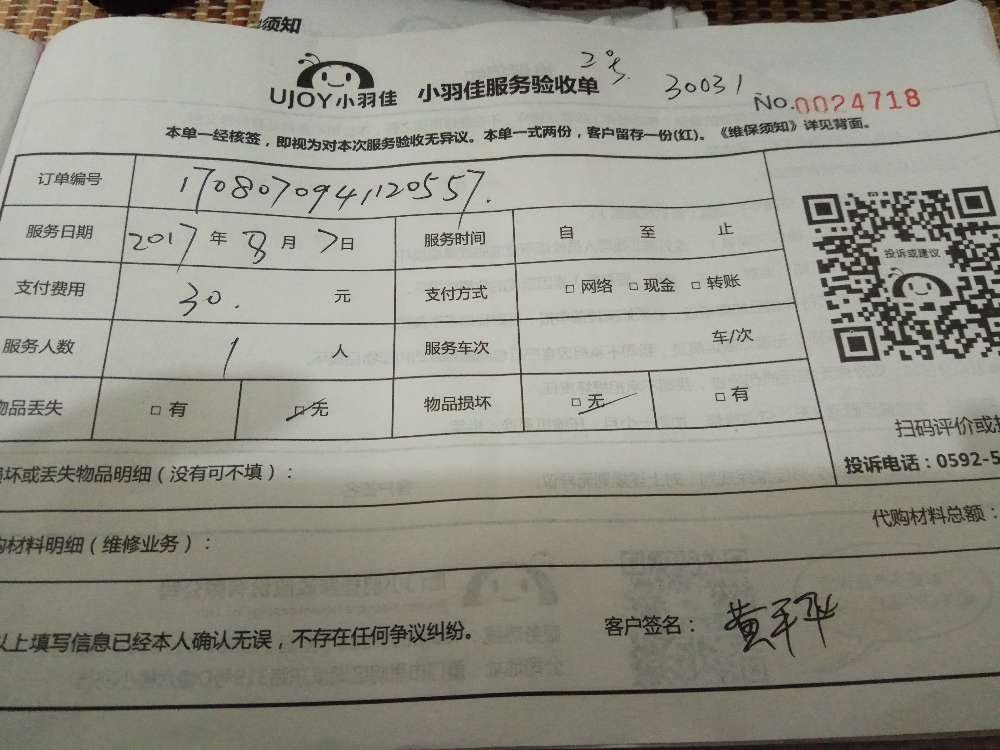 须知
UJOY小羽佳 小羽佳服务验收单 30031 No.0024718
本单一经核签，即视为对本次服务验收无异议。本单一式两份，客户留存一份(红)。《维保须知》详见背面。
订单编号 170807094120557.
服务日期 2017 年 8 月 7 日 服务时间 自 至 止
投诉或建议
支付费用 30. 元 支付方式 □ 网络 □ 现金 □ 转账
服务人数 1 人 服务车次 车/次
物品丢失 □ 有 □ 无 物品损坏 □ 无 □ 有
扫码评价或
投诉电话：0592-5
损坏或丢失物品明细（没有可不填）：
代购材料总额：
购材料明细（维修业务）：
以上填写信息已经本人确认无误，不存在任何争议纠纷。 客户签名：